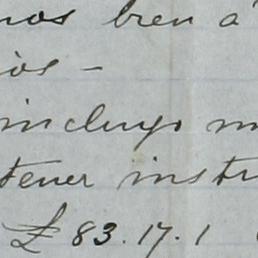 nos bien á
ios -
incluyo m
tener instr
£ 83.17.1